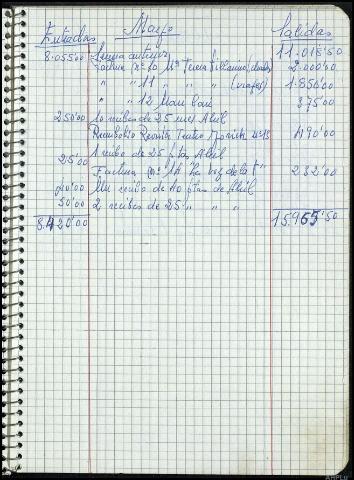 Entradas Marzo Salidas
8.055'00 Suma anterior 11.018'50
Factura nº 10 Mª Teresa Villarino 2.000'00
" " 11 " " " 1.850'00
" " 12 375'00
250'00 10 recibos de 25 mes Abril
Reembolso Revista Teatro 490'00
25'00 1 recibo de 25 ptas Abril
Factura nº 14 "La voz de la 232'00
20'00 Un recibo de 40 ptas de Abril
50'00 2 recibos de 25 " " "
8.420'00 15.965'50
AHPLU